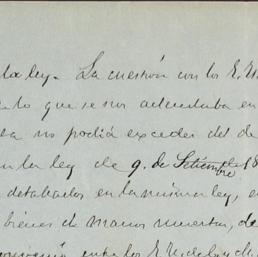 la ley. La cuestión con los E. U
lo que se nos adeudaba en
no podia exceder del de
la ley de 9. de Setiembre 18
detallados en la misma ley, e
bienes de manos muertas, de
entre los E. U. de